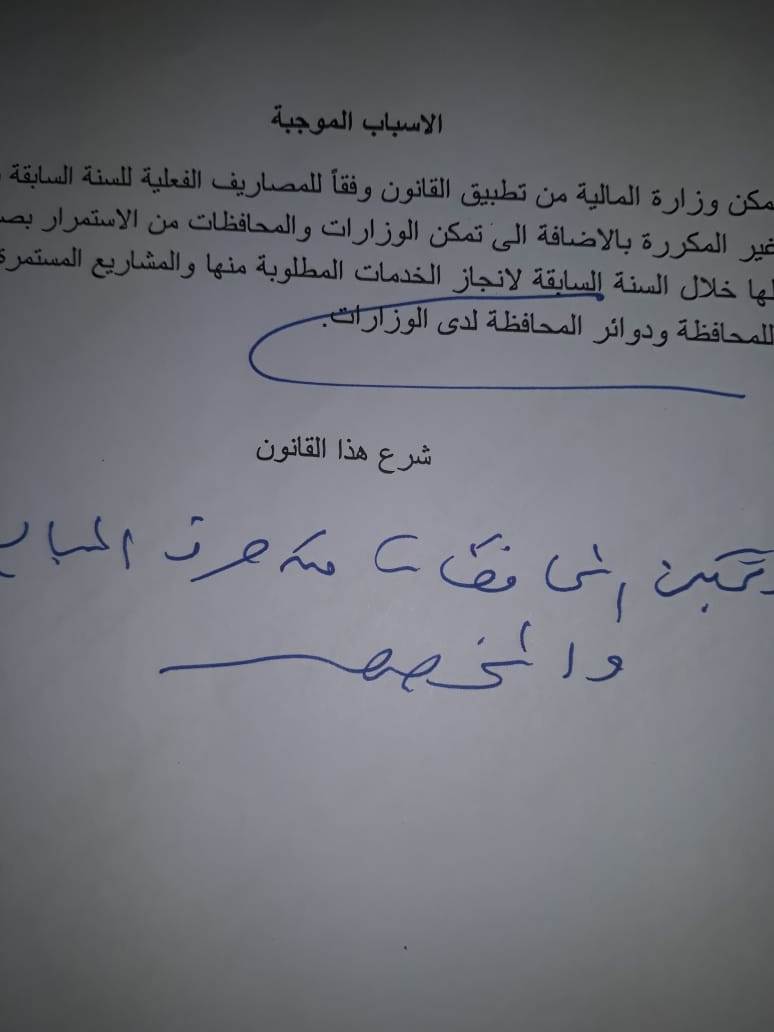 الاسباب الموجبة
مكن وزارة المالية من تطبيق القانون وفقاً للمصاريف الفعلية للسنة السابقة
غير المكررة بالاضافة الى تمكن الوزارات والمحافظات من الاستمرار بصـ
لها خلال السنة السابقة لانجاز الخدمات المطلوبة منها والمشاريع المستمرة
للمحافظة ودوائر المحافظة لدى الوزارات.
شرع هذا القانون
المحافظات من صرف المبالـ